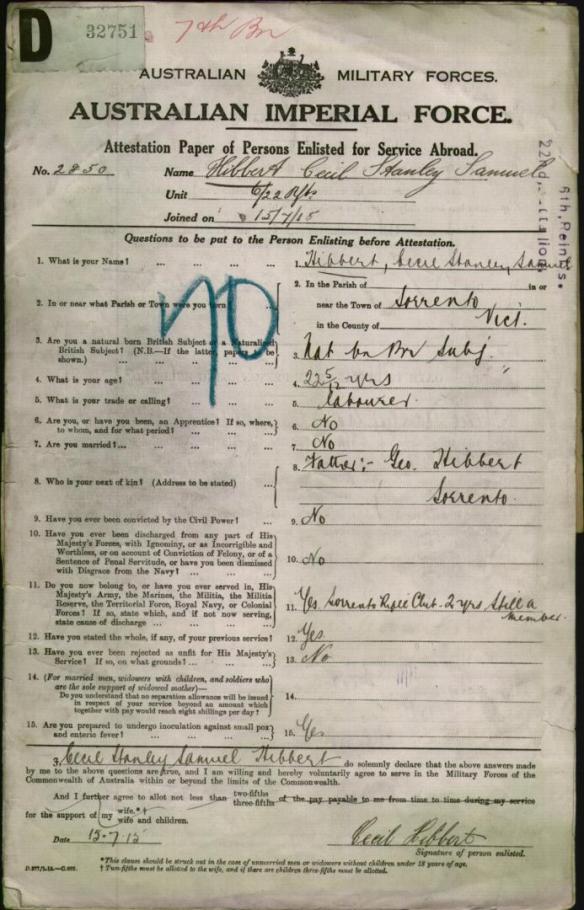 D 32751
7th Bn
AUSTRALIAN MILITARY FORCES.
AUSTRALIAN IMPERIAL FORCE.
Attestation Paper of Persons Enlisted for Service Abroad.
No. 2850 Name Hibbert Cecil Stanley Samuel
Unit 6/22 Rfts
Joined on 15/7/15
22nd Battalion
6th Reinfts.
Questions to be put to the Person Enlisting before Attestation.
1. What is your Name? ... ... ... ... 1. Hibbert, Cecil Stanley, Samuel
2. In or near what Parish or Town were you born? 2. In the Parish of in or
near the Town of Sorrento
in the County of Vict.
3. Are you a natural born British Subject or a Naturalised
British Subject? (N.B.—If the latter, papers to be
shown.) ... ... ... 3. Nat bn Br Subj.
4. What is your age? ... ... ... ... 4. 22 5/12 yrs
5. What is your trade or calling? ... ... ... 5. labourer
6. Are you, or have you been, an Apprentice? If so, where,
to whom, and for what period? ... ... ... 6. No
7. Are you married? ... ... ... ... ... 7. No
8. Who is your next of kin? (Address to be stated) ... 8. Father:- Geo. Hibbert
Sorrento.
9. Have you ever been convicted by the Civil Power? ... 9. No
10. Have you ever been discharged from any part of His
Majesty's Forces, with Ignominy, or as Incorrigible and
Worthless, or on account of Conviction of Felony, or of a
Sentence of Penal Servitude, or have you been dismissed
with Disgrace from the Navy? ... ... ... 10. No
11. Do you now belong to, or have you ever served in, His
Majesty's Army, the Marines, the Militia, the Militia
Reserve, the Territorial Force, Royal Navy, or Colonial
Forces? If so, state which, and if not now serving,
state cause of discharge ... ... ... ... 11. Yes Sorrento Rifle Club. 2 yrs Still a
member.
12. Have you stated the whole, if any, of your previous service? 12. Yes
13. Have you ever been rejected as unfit for His Majesty's
Service? If so, on what grounds? ... ... ... 13. No
14. (For married men, widowers with children, and soldiers who
are the sole support of widowed mother)—
Do you understand that no separation allowance will be issued
in respect of your service beyond an amount which
together with pay would reach eight shillings per day? ... 14.
15. Are you prepared to undergo inoculation against small pox
and enteric fever? ... ... ... ... 15. Yes
I, Cecil Stanley Samuel Hibbert do solemnly declare that the above answers made
by me to the above questions are true, and I am willing and hereby voluntarily agree to serve in the Military Forces of the
Commonwealth of Australia within or beyond the limits of the Commonwealth.
And I further agree to allot not less than two-fifths
three-fifths of the pay payable to me from time to time during my service
for the support of my wife.*†
wife and children.
Date 15-7-15 Cecil Hibbert
Signature of person enlisted.
*This clause should be struck out in the case of unmarried men or widowers without children under 18 years of age.
† Two-fifths must be allotted to the wife, and if there are children three-fifths must be allotted.